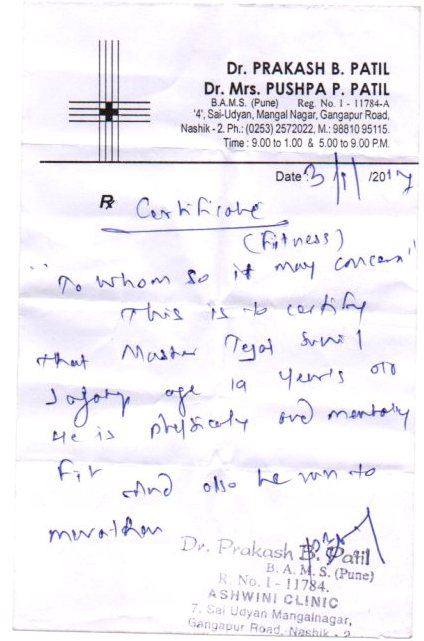 Dr. PRAKASH B. PATIL
Dr. Mrs. PUSHPA P. PATIL
B.A.M.S. (Pune) Reg. No. I - 11784-A
'4', Sai-Udyan, Mangal Nagar, Gangapur Road,
Nashik - 2. Ph.: (0253) 2572022, M.: 98810 95115.
Time : 9.00 to 1.00 & 5.00 to 9.00 P.M.
Date : 3/1/2017
Rx Certificate
(Fitness)
"To whom so it may concern"
This is to certify
that Master Tejas Sunil
age 19 years old
He is physicaly and mentaly
Fit
And also he run to
marathon
Dr. Prakash B. Patil
B. A. M. S. (Pune)
R. No. I - 11784.
ASHWINI CLINIC
7, Sai Udyan Mangalnagar,
Gangapur Road, Nashik